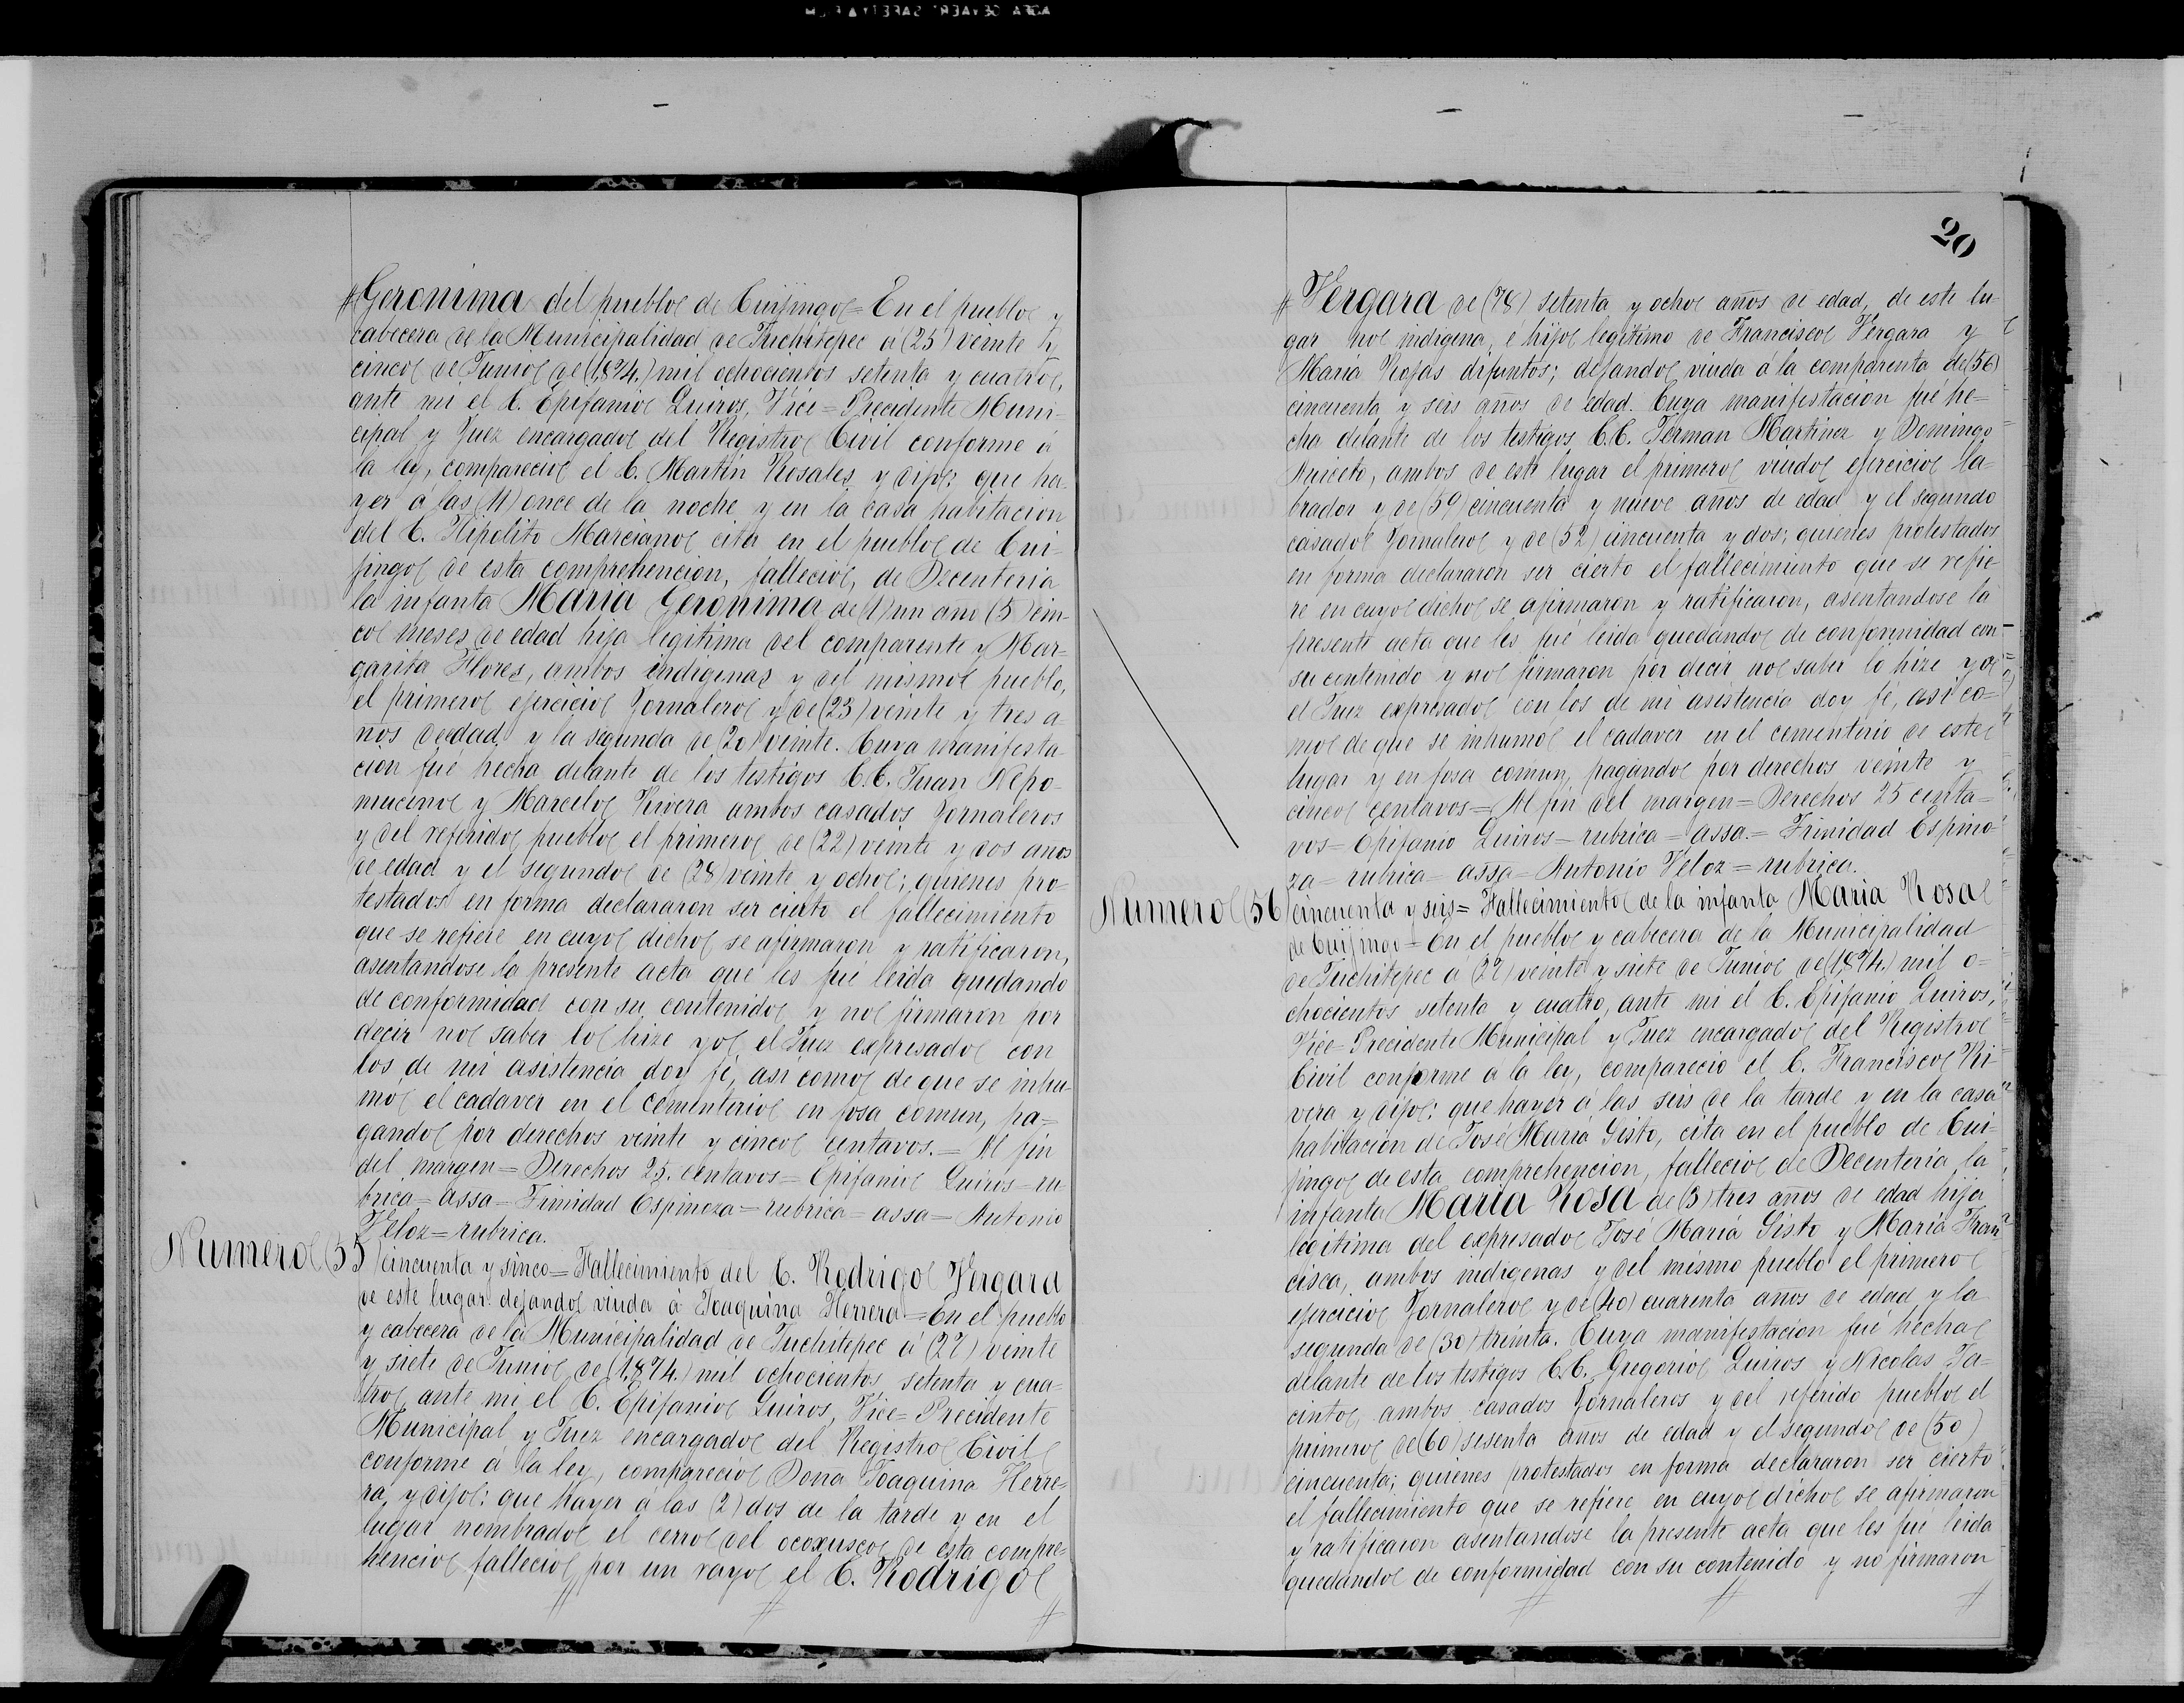 # Geronima del pueblo de Cuijingo = En el pueblo y
cabecera de la Municipalidad de Tuchitepec á (25) veinte y
cinco de Junio de (1,874.) mil ochocientos setenta y cuatro,
ante mi el C. Epifanio Quiros, Vice = Precidente Muni-
cipal y Juez encargado del Registro Civil conforme á
la ley, comparecio el C. Martin Rosales y dijo; que ha-
yer á las (11) once de la noche y en la casa habitacion
del C. Hipolito Marciano cita en el pueblo de Cui-
jingo de esta comprehencion, fallecio, de Decenteria
la infanta Maria Geronima de (1) un año (5) cin-
co meses de edad hija legitima del comparente y Mar-
garita Flores, ambos indigenas y del mismo pueblo,
el primero ejercicio Jornalero y de (23) veinte y tres a-
ños deedad y la segunda de (20) veinte. Cuya manifesta-
cion fué hecha delante de los testigos C.C. Juan Nepo-
muceno y Marcelo Rivera ambos casados Jornaleros
y del referido pueblo el primero de (22) veinte y dos años
de edad y el segundo de (28) veinte y ocho; quienes pro-
testados en forma declararon ser cierto el fallecimiento
que se refiere en cuyo dicho se afirmaron y ratificaron,
asentandose la presente acta que les fué leida quedando
de conformidad con su contenido y no firmaron por
decir no saber lo hize yo el Juez expresado con
los de mi asistencia doy fé, asi como de que se inhu-
mó el cadaver en el cementerio en fosa comun, pa=
gando por derechos veinte y cinco centavos. = Al fin
del margen = Derechos 25. centavos = Epifanio Quiros = ru-
brica = assa = Trinidad Espinoza = rubrica = assa = Antonio
Veloz = rubrica.
Numero (55) cincuenta y sinco = Fallecimiento del C. Rodrigo Vergara
de este lugar dejando viuda á Joaquina Herrera = En el pueblo
y cabecera de la Municipalidad de Tuchitepec á (27) veinte
y siete de Junio de (1,874.) mil ochocientos setenta y cua-
tro, ante mi el C. Epifanio Quiros, Vice = Precidente
Municipal y Juez encargado del Registro Civil
conforme á la ley, comparecio Doña Joaquina Herre-
ra, y dijo: que hayer á las (2) dos de la tarde y en el
lugar nombrado el cerro del ocoxusco de esta compre-
hencio fallecio por un rayo el C. Rodrigo
20
# Vergara de (78) setenta y ocho años de edad, de este lu-
gar no indigena, e hijo legitimo de Francisco Vergara y
Maria Rojas difuntos; dejando viuda á la comparenta de (56)
cincuenta y seis años de edad. Cuya manifestacion fué he-
cha delante de los testigos C.C. German Martinez y Domingo
Aniceto, ambos de este lugar el primero viudo ejercicio la-
brador y de (59) cincuenta y nueve años de edad y el segundo
casado Jornalero y de (52) cincuenta y dos; quienes protestados
en forma declararon ser cierto el fallecimiento que se refie-
re en cuyo dicho se afirmaron y ratificaron, asentandose la
presente acta que les fué leida quedando de conformidad con
su contenido y no firmaron por decir no saber lo hize yo
el Juez expresado con los de mi asistencia doy fé, asi co-
mo de que se inhumó el cadaver en el cementerio de este
lugar y en fosa comun, pagando por derechos veinte y
cinco centavos = Al fin del margen = Derechos 25 centa-
vos = Epifanio Quiros = rubrica = assa. = Trinidad Espino-
za = rubrica = assa = Antonio Veloz = rubrica.
Numero (56) cincuenta y seis = Fallecimiento de la infanta Maria Rosa
de Cuijingo = En el pueblo y cabecera de la Municipalidad
de Tuchitepec á (27) veinte y siete de Junio de (1,874.) mil o-
chocientos setenta y cuatro, ante mi el C. Epifanio Quiros,
Vice = Precidente Municipal y Juez encargado del Registro
Civil conforme á la ley, comparecio el C. Francisco Ri-
vera y dijo: que hayer á las seis de la tarde y en la casa
habitacion de José Maria Sisto, cita en el pueblo de Cui-
jingo de esta comprehencion, fallecio de Decenteria la
infanta Maria Rosa de (3) tres años de edad hija
legitima del expresado José Maria Sisto y Maria Fran-
cisca, ambos indigenas y del mismo pueblo el primero
ejercicio Jornalero y de (40) cuarenta años de edad y la
segunda de (30) treinta. Cuya manifestacion fué hecha
delante de los testigos C.C. Gregorio Quiros y Nicolas Ja-
cinto, ambos casados Jornaleros y del referido pueblo el
primero de (60) sesenta años de edad y el segundo de (50)
cincuenta; quienes protestados en forma declararon ser cierto
el fallecimiento que se refiere en cuyo dicho se afirmaron
y ratificaron asentandose la presente acta que les fué leida
quedando de conformidad con su contenido y no firmaron